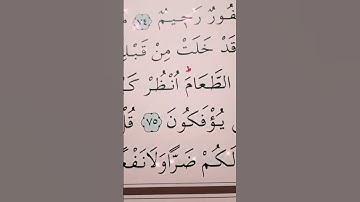 غَفُورٌ رَّحِيمٌ ٧٤
قَدْ خَلَتْ مِن قَبْلِ
الطَّعَامَ انظُرْ كَ
يُؤْفَكُونَ ٧٥ قُلْ
لَكُمْ ضَرًّا وَلَا نَفْعًا